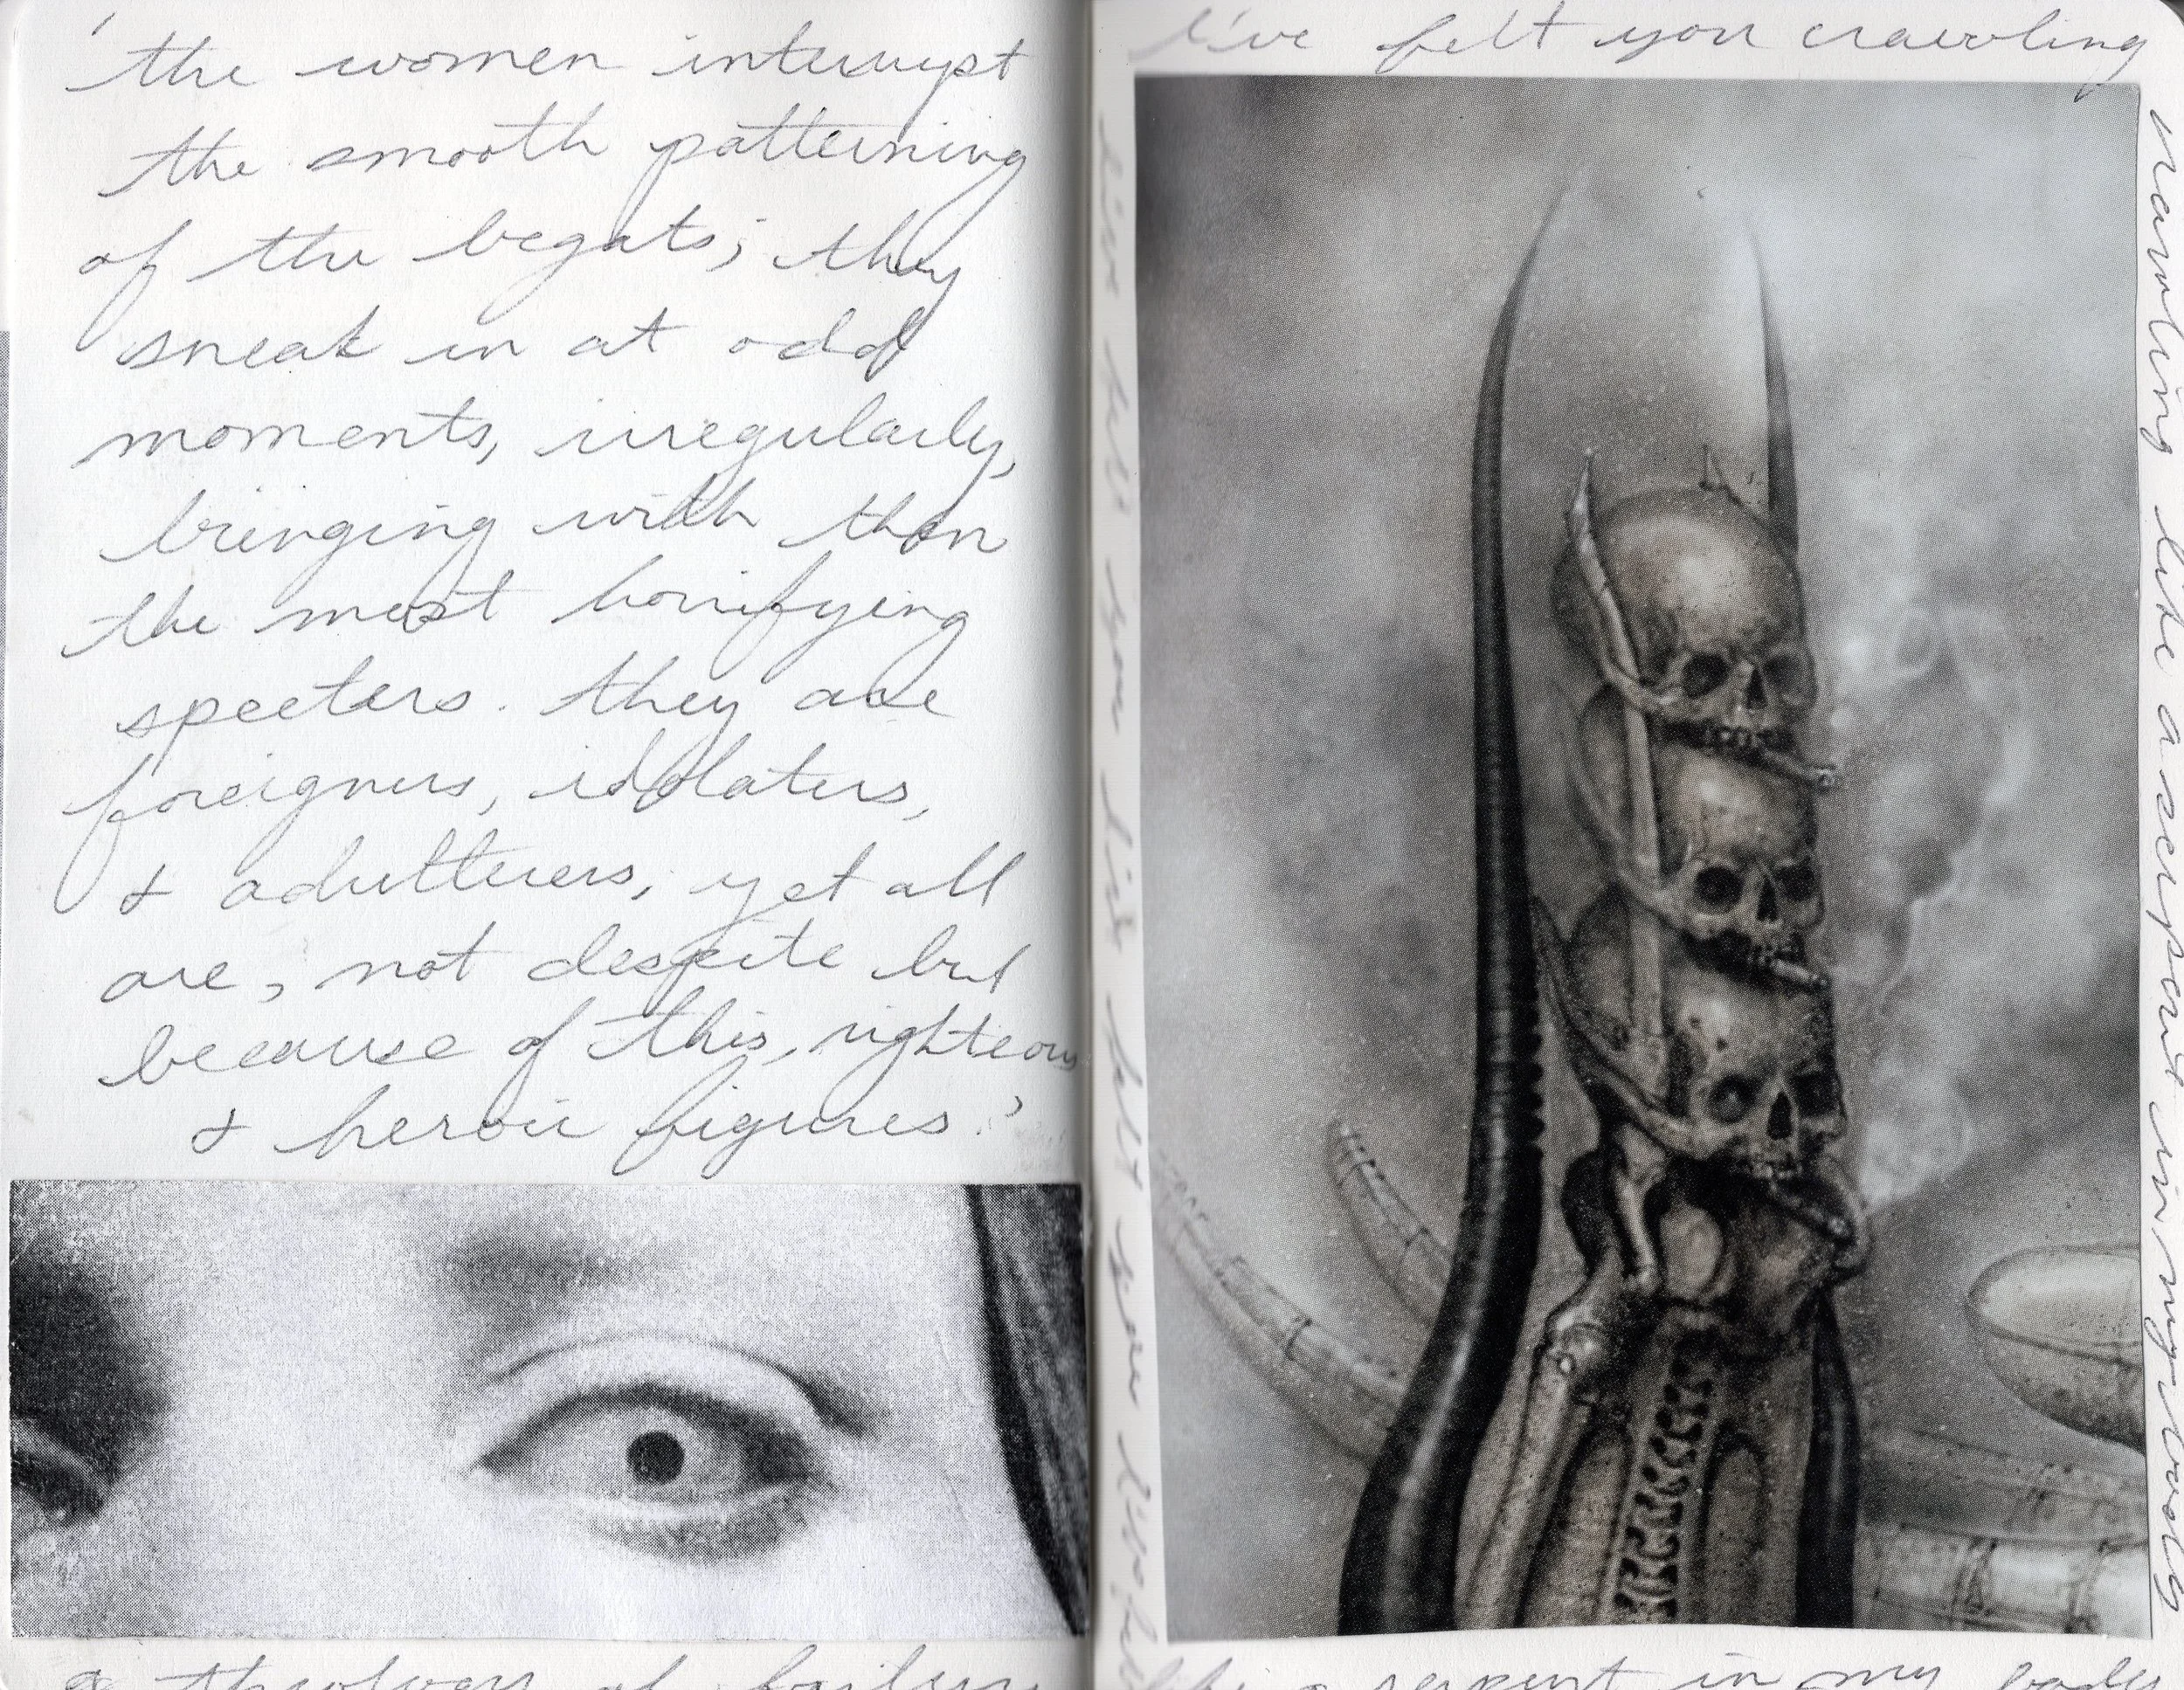 'the women interrupt
the smooth patterning
of the begats; they
sneak in at odd
moments, irregularly,
bringing with them
the most horrifying
specters. they are
foreigners, idolaters,
& adulterers, yet all
are, not despite but
because of this, righteous
& heroic figures.'
a theology of failure
I've felt you crawling
crawling like a serpent in my body
like a serpent in my body